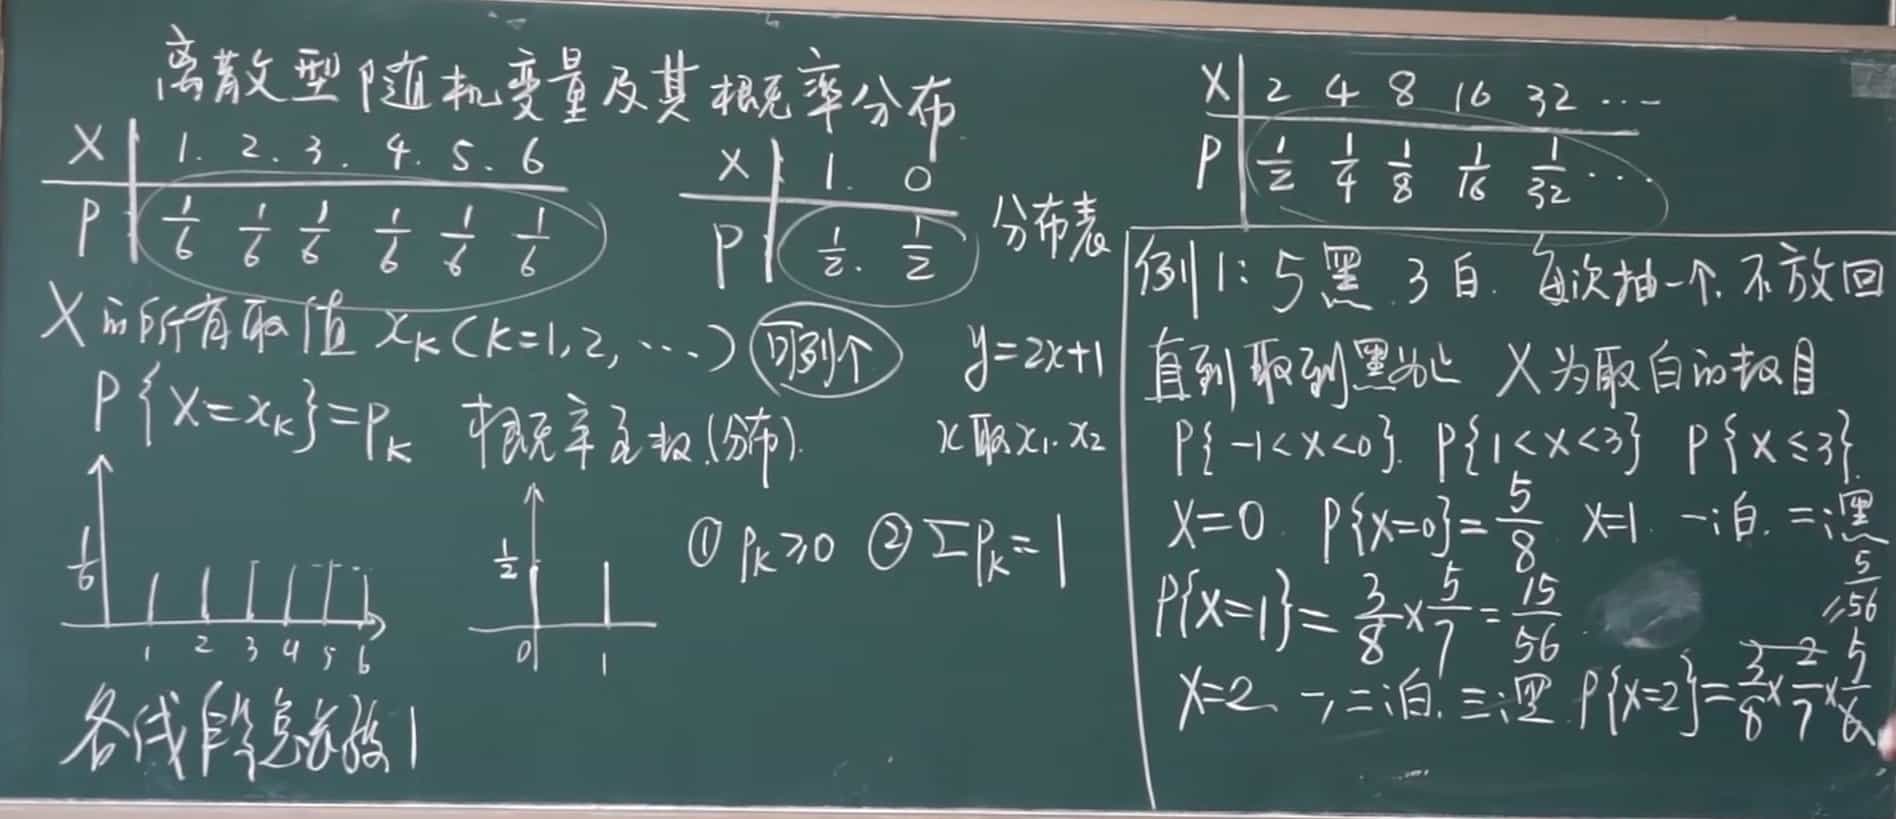 离散型随机变量及其概率分布
X | 1. 2. 3. 4. 5. 6
P | 1/6 1/6 1/6 1/6 1/6 1/6
X | 1. 0
P | 1/2. 1/2
分布表
X的所有取值 x_K (K=1,2,…) 可列个
P{X=x_K}=P_K 概率函数(分布).
y=2x+1
x取x₁.x₂
1/6
1 2 3 4 5 6
1/2
0 1
① P_K⩾0 ② ΣP_K=1
各线段总长度1
X | 2 4 8 16 32 …
P | 1/2 1/4 1/8 1/16 1/32 …
例1: 5黑.3白. 每次抽一个.不放回
直到取到黑为止 X为取白的数目
P{-1<X<0}. P{1<X<3} P{X≤3}.
X=0. P{X=0}=5/8 X=1. 一次白.二次黑
P{X=1}=3/8×5/7=15/56.
X=2 一,二次白.三次黑. P{X=2}=3/8×2/7×5/6
=5/56